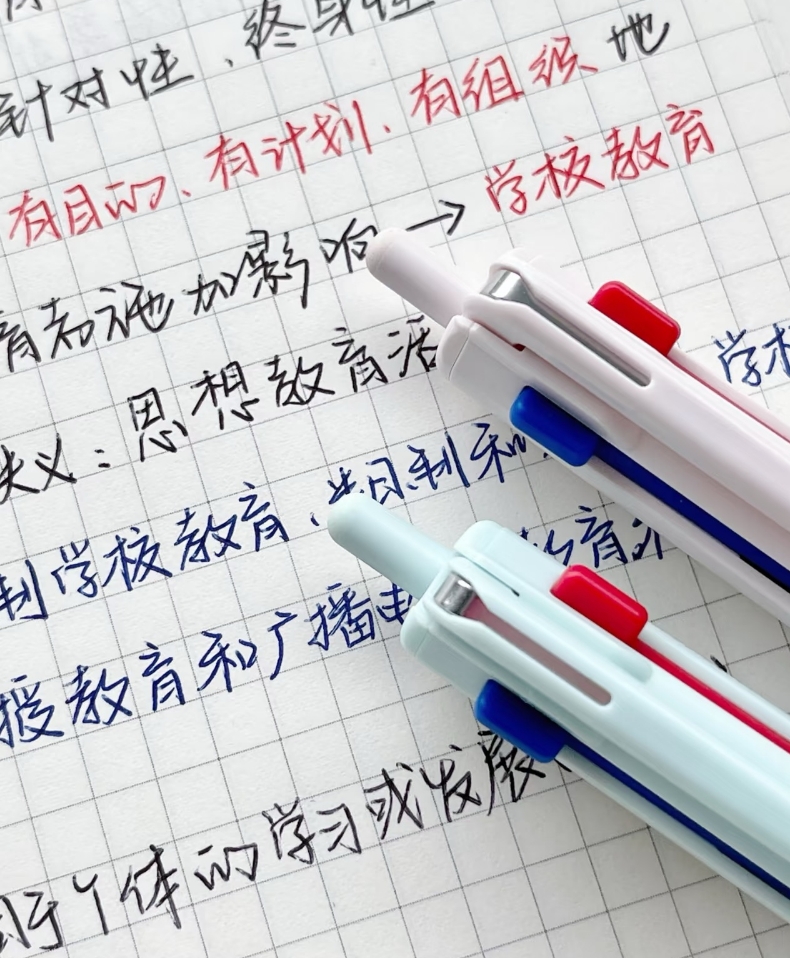 针对性、终身性
有目的、有计划、有组织地
育者施加影响→学校教育
义：思想教育活
学校
制学校教育、半日制和
教育
授教育和广播电
于个体的学习或发展